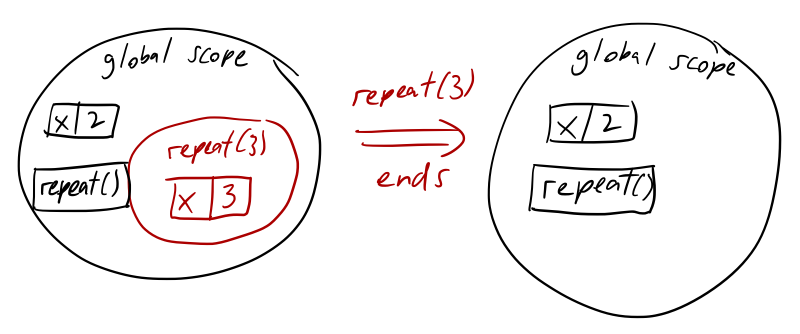 global scope
x 2
repeat()
repeat(3)
x 3
repeat(3)
ends
global scope
x 2
repeat()